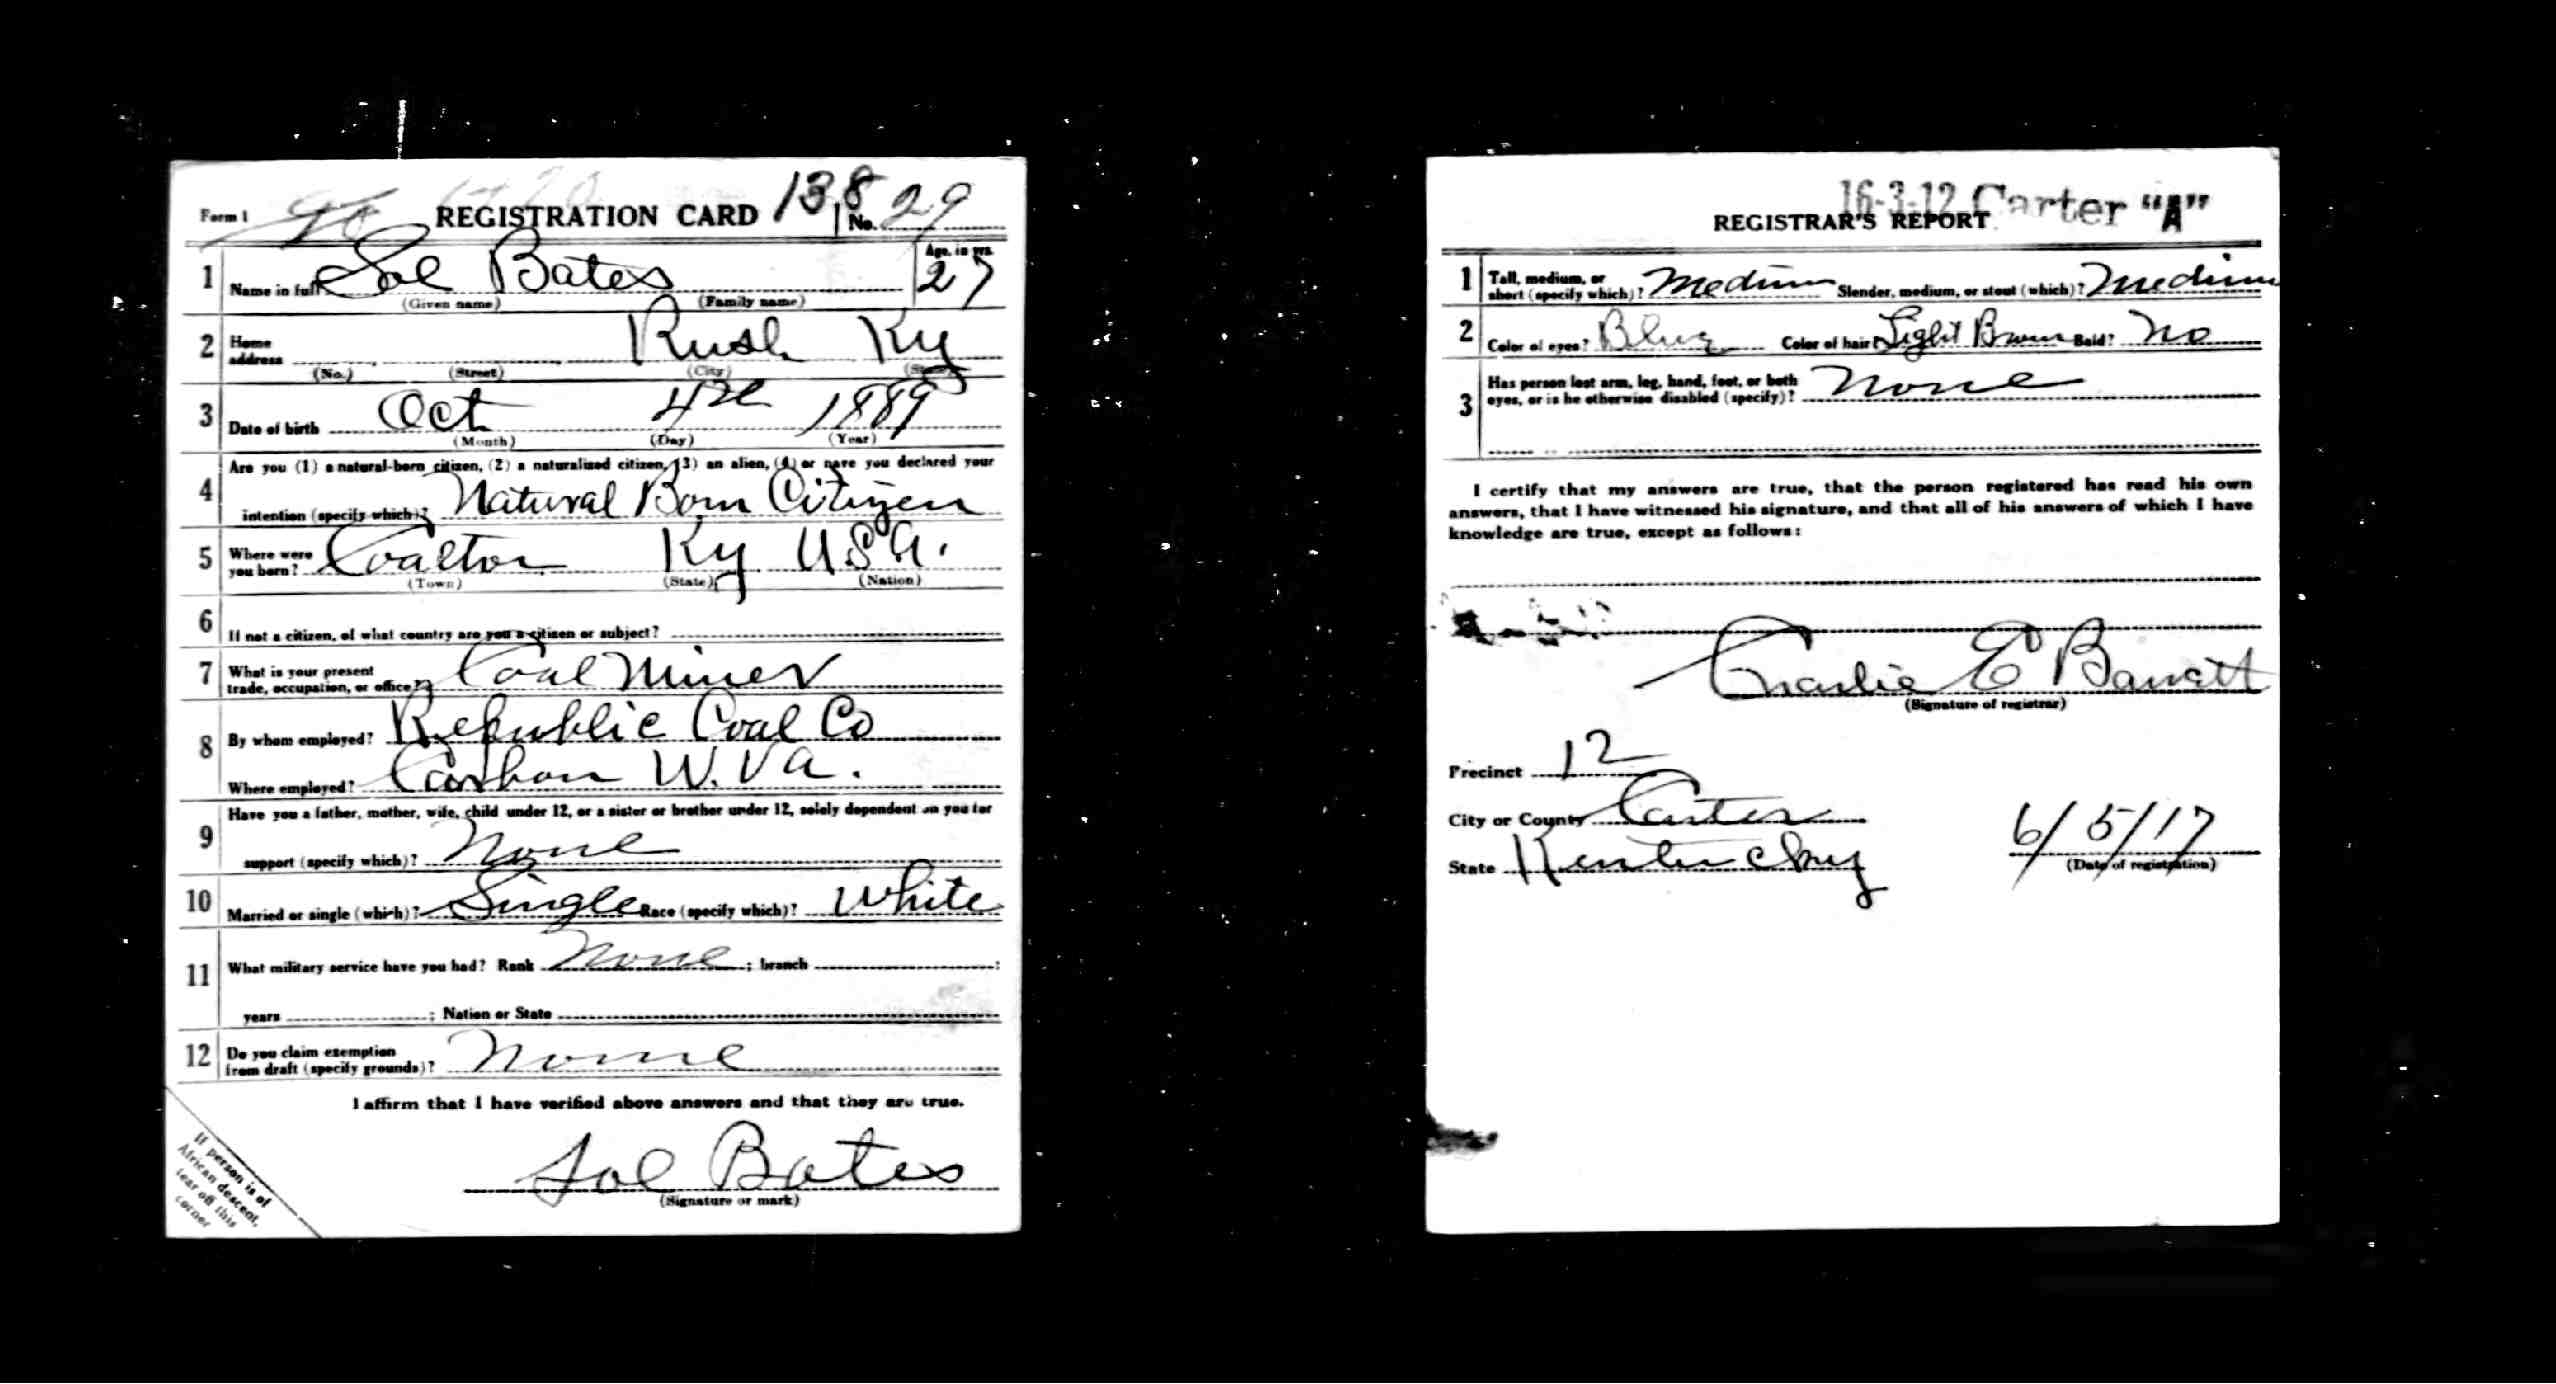 Form 1 REGISTRATION CARD 138 No. 29
1 Name in full Sol Bates Age, in yrs. 27
(Given name) (Family name)
2 Home address Rush Ky
(No.) (Street) (City) (State)
3 Date of birth Oct 4th 1889
(Month) (Day) (Year)
4 Are you (1) a natural-born citizen, (2) a naturalized citizen, (3) an alien, (4) or have you declared your
intention (specify which)? Natural Born Citizen
5 Where were you born? Coalton Ky USA.
(Town) (State) (Nation)
6 If not a citizen, of what country are you a citizen or subject?
7 What is your present trade, occupation, or office? Coal Miner
8 By whom employed? Republic Coal Co
Where employed? Carbon W. Va.
9 Have you a father, mother, wife, child under 12, or a sister or brother under 12, solely dependent on you for
support (specify which)? None
10 Married or single (which)? Single Race (specify which)? White
11 What military service have you had? Rank None ; branch ;
years ; Nation or State
12 Do you claim exemption from draft (specify grounds)? None
I affirm that I have verified above answers and that they are true.
Sol Bates
(Signature or mark)
If person is of
African descent,
tear off this
corner
16-3-12 Carter "A"
REGISTRAR'S REPORT
1 Tall, medium, or short (specify which)? Medium Slender, medium, or stout (which)? Medium
2 Color of eyes? Blue Color of hair? Light Brown Bald? No
3 Has person lost arm, leg, hand, foot, or both
eyes, or is he otherwise disabled (specify)? None
I certify that my answers are true, that the person registered has read his own
answers, that I have witnessed his signature, and that all of his answers of which I have
knowledge are true, except as follows:
Charlie E Barratt
(Signature of registrar)
Precinct 12
City or County Carter
State Kentucky
6/5/17
(Date of registration)